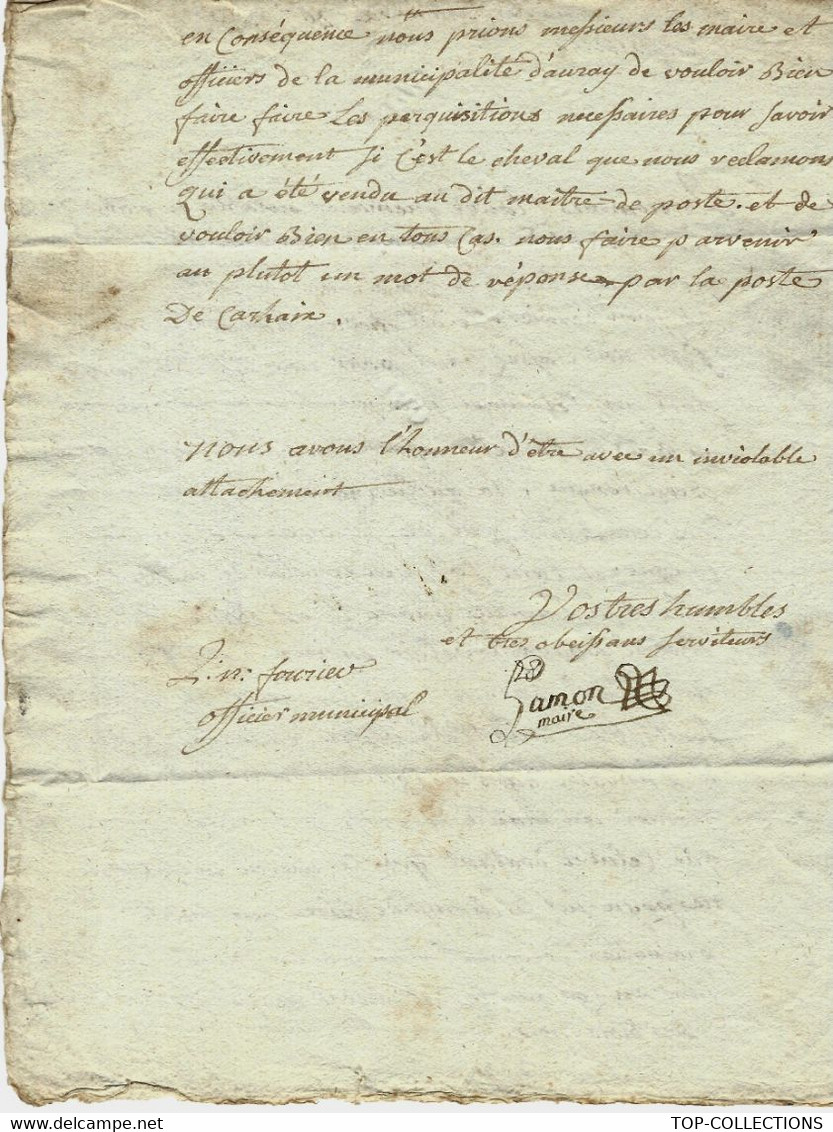 en Conséquence nous prions messieurs les maire et
officiers de la municipalité d'auray de vouloir Bien
faire faire Les perquisitions necessaires pour savoir
effectivement si c'est le cheval que nous reclamons
qui a été vendu au dit maitre de poste. et de
vouloir Bien en tous Cas. nous faire parvenir
au plutot un mot de réponse par la poste
De Carhaix.
nous avons l'honneur d'être avec un inviolable
attachement
Vos tres humbles
et tres obeissans serviteurs
officier municipal
maire
TOP-COLLECTIONS